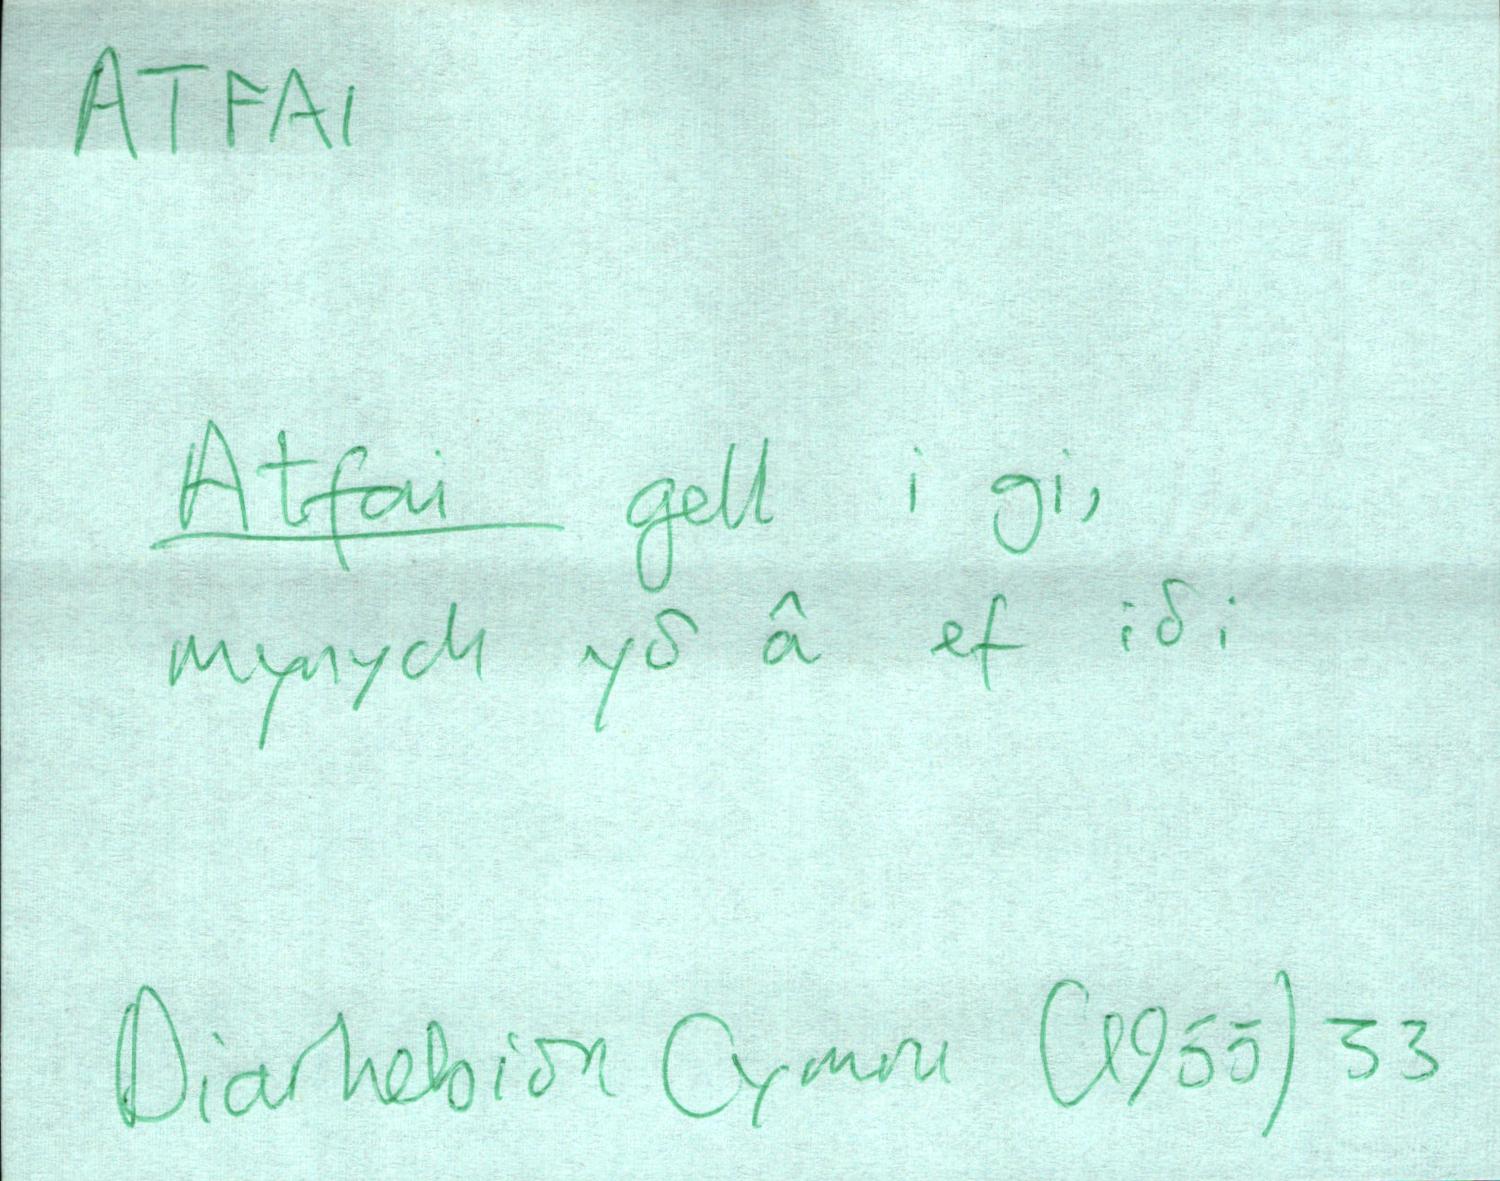 ATFAI
Atfai gell i gi,
mynych yδ â ef iδi
Diarhebion Cymru (1955) 33